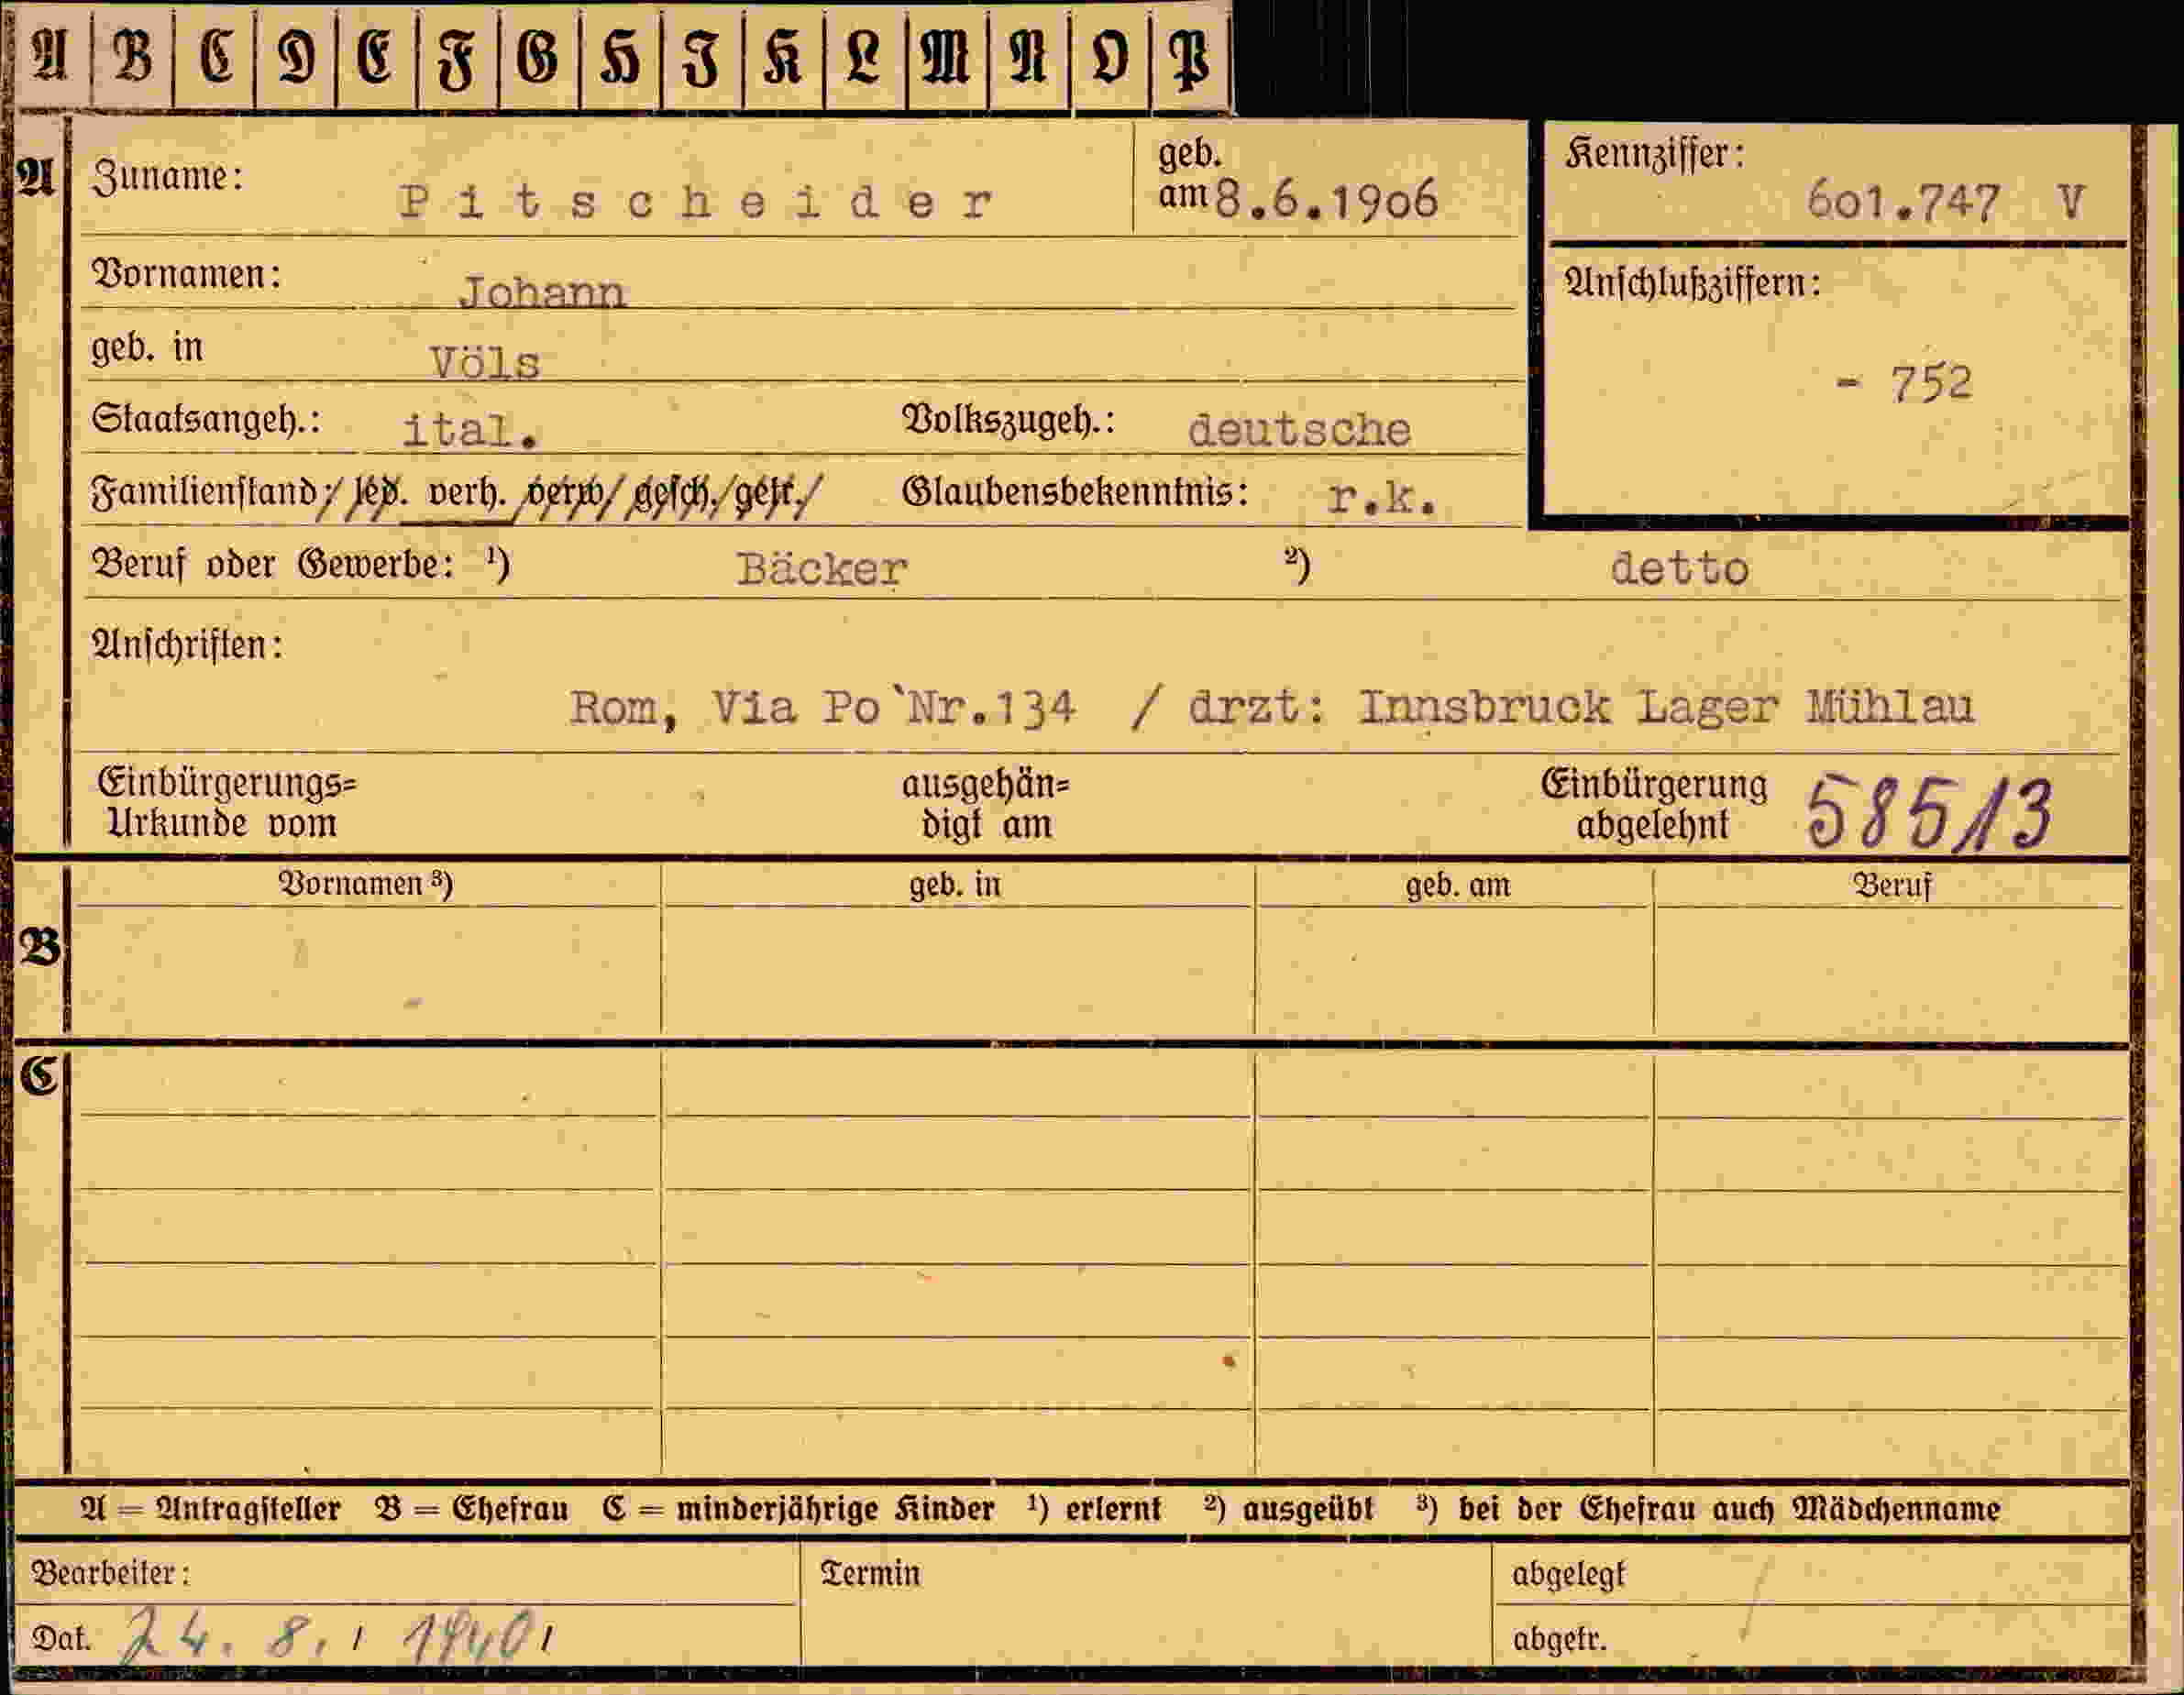 A B C D E F G H I K L M N O P
A Zuname: Pitscheider geb. am 8.6.1906 Kennziffer: 601.747 V
Vornamen: Johann Anschlußziffern:
geb. in Völs - 752
Staatsangeh.: ital. Volkszugeh.: deutsche
Familienstand: led. verh. verw. gesch. getr. Glaubensbekenntnis: r.k.
Beruf oder Gewerbe: ¹) Bäcker ²) detto
Anschriften:
Rom, Via Po Nr.134 / drzt: Innsbruck Lager Mühlau
Einbürgerungs= ausgehän= Einbürgerung 58513
Urkunde vom digt am abgelehnt
Vornamen ³) geb. in geb. am Beruf
B
C
A = Antragsteller B = Ehefrau C = minderjährige Kinder ¹) erlernt ²) ausgeübt ³) bei der Ehefrau auch Mädchenname
Bearbeiter: Termin abgelegt
Dat. 24. 8. 1940 abgetr.